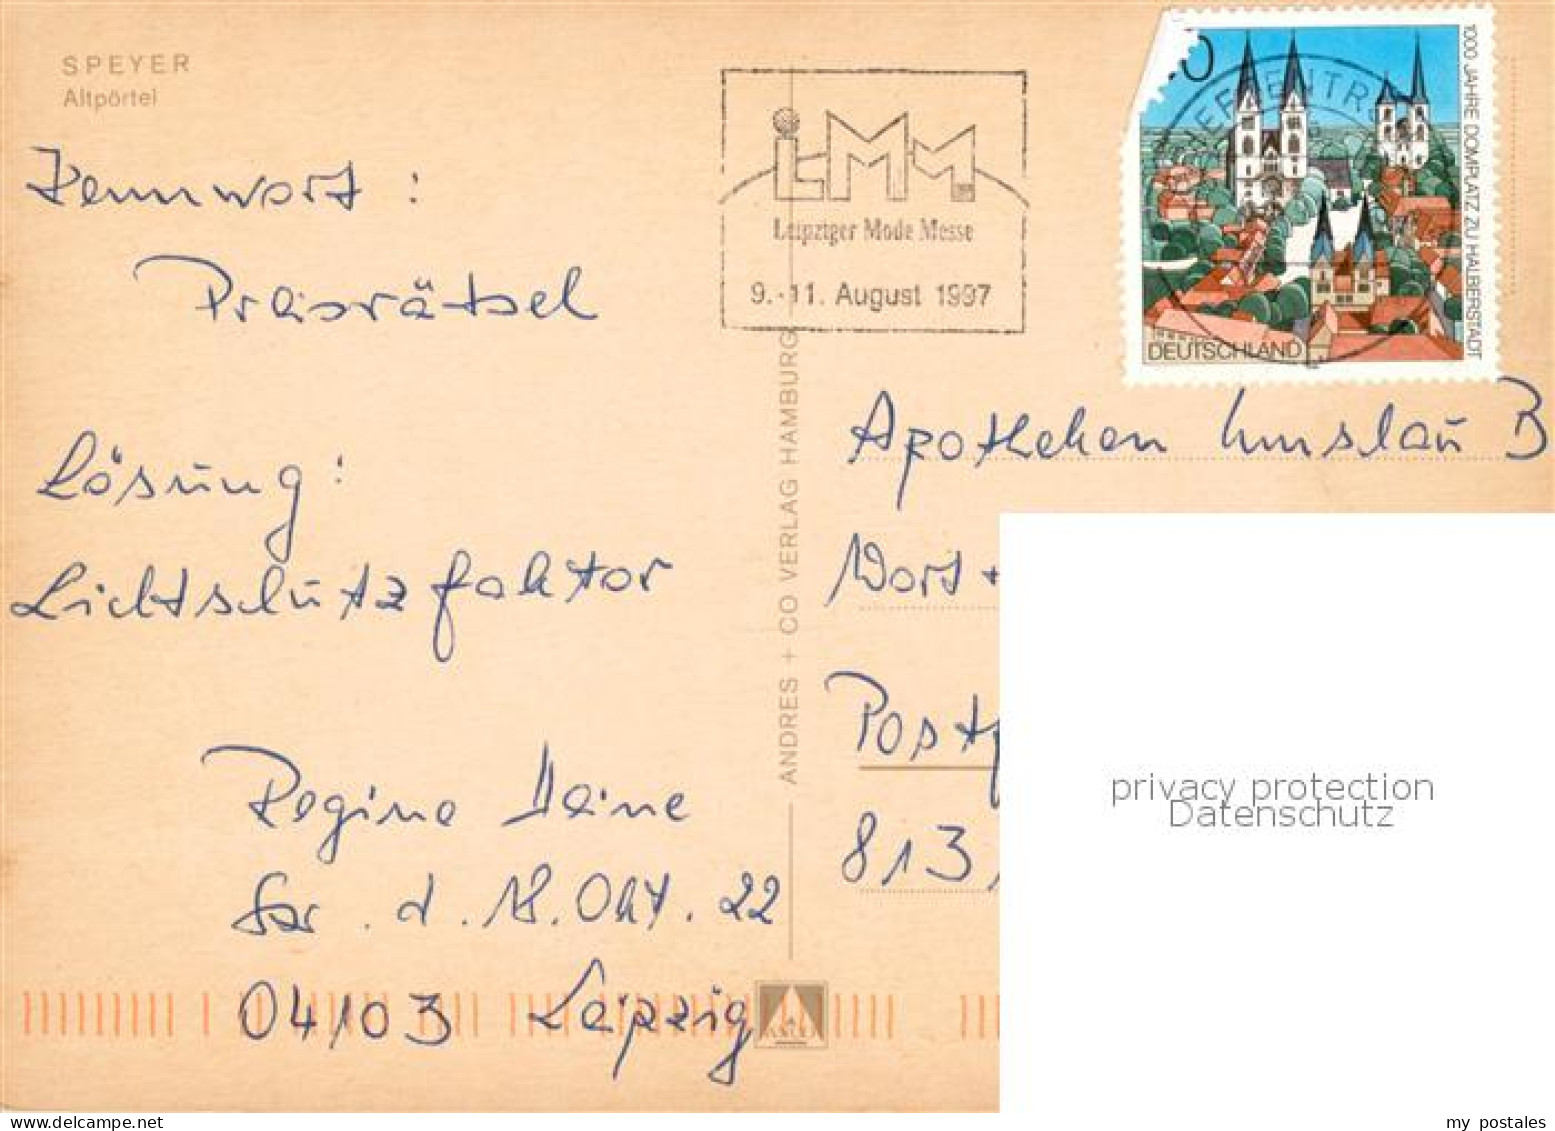 SPEYER
Altpörtel
Kennwort :
Preisrätsel
Lösung :
Lichtschutzfaktor
Regine Heine
Str. d. 18. Okt. 22
04103 Leipzig
ANDRES + CO VERLAG HAMBURG
LMM
Leipziger Mode Messe
9.-11. August 1997
0
1000 JAHRE DOMPLATZ ZU HALBERSTADT
DEUTSCHLAND
Apotheken Umschau B
Wort +
Postf
813
privacy protection
Datenschutz
my postales